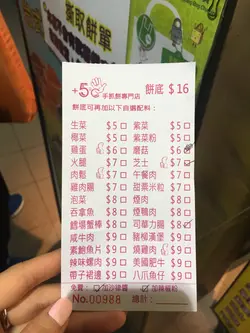 取餅單
+5℃ 手抓餅專門店 餅底 $16
餅底可再加以下自選配料:
生菜 $5 紫菜 $5
椰菜 $5 紫菜粉 $5
雞蛋 $6 蘑菇 $6
火腿 $7 芝士 $7
肉鬆 $7 午餐肉 $7
雞肉腸 $7 甜粟米粒 $7
泡菜 $8 煙肉 $8
吞拿魚 $8 煙鴨肉 $8
鱈場蟹棒 $8 司華力腸 $8
咸牛肉 $9 豬柳漢堡 $9
素鮑魚片 $9 燒雞肉 $9
辣味螺肉 $9 美國肥牛 $9
帶子裙邊 $9 八爪魚仔 $9
免費: 加沙律醬 加辣椒粉
No.00988 總計: